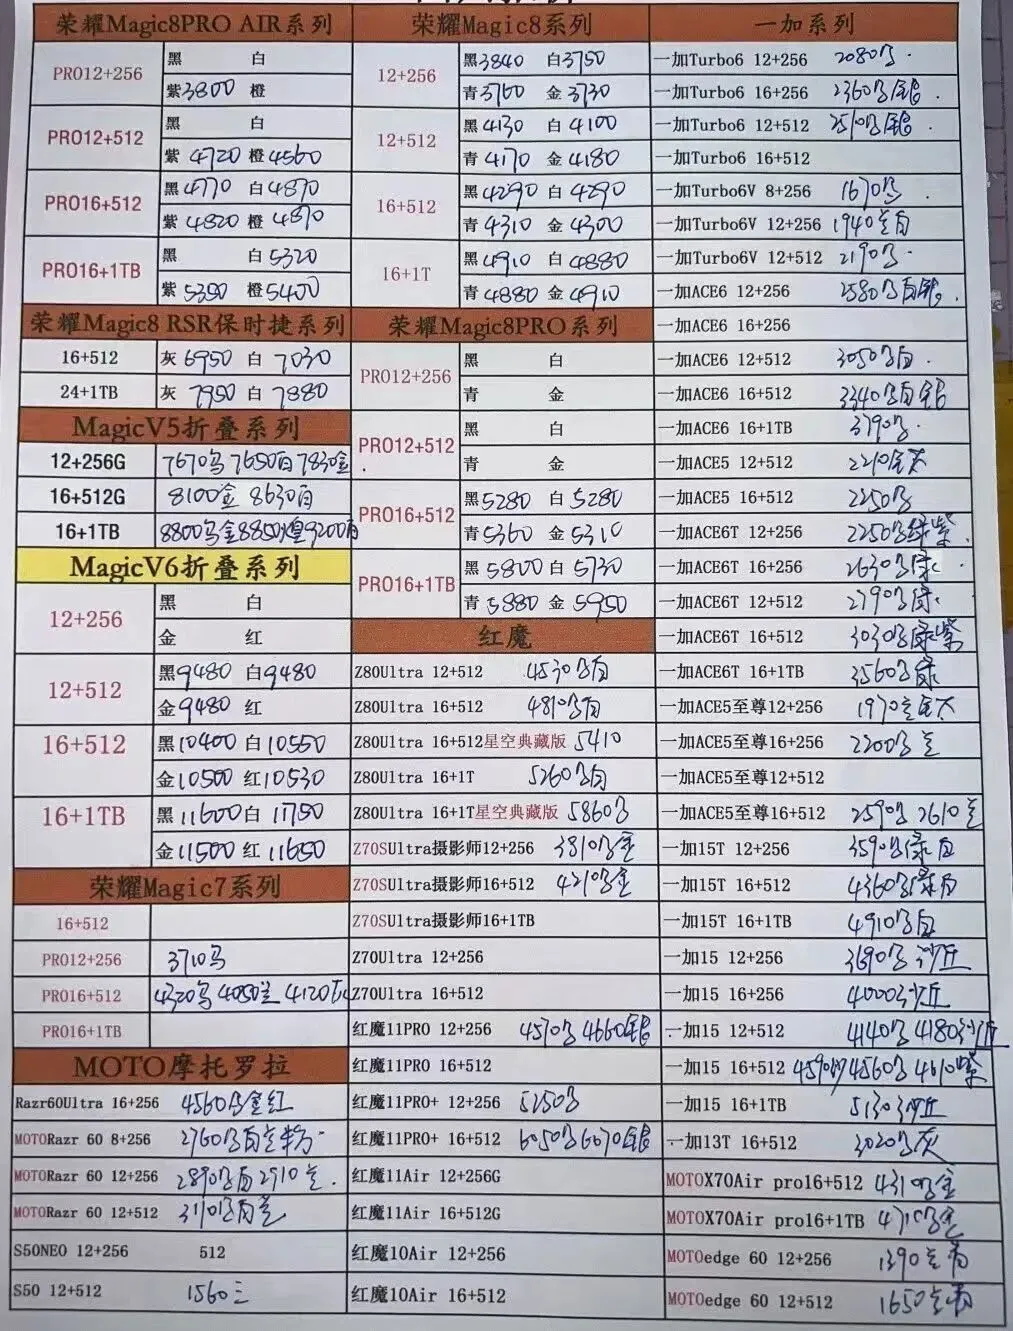 荣耀Magic8PRO AIR系列
PRO12+256
黑 白
紫3800 橙
PRO12+512
黑 白
紫 4720 橙 4560
PRO16+512
黑 4770 白 4870
紫 4820 橙 4870
PRO16+1TB
黑 白 5320
紫 5350 橙 5400
荣耀Magic8 RSR保时捷系列
16+512 灰 6950 白 7030
24+1TB 灰 7950 白 7880
MagicV5折叠系列
12+256G 7670乌 7650白 7830金
16+512G 8100金 8630白
16+1TB 8800乌金8850煌9200白
MagicV6折叠系列
12+256
黑 白
金 红
12+512
黑9480 白9480
金9480 红
16+512
黑10400 白10550
金10500 红10530
16+1TB
黑11600 白 11750
金11500 红 11650
荣耀Magic7系列
16+512
PRO12+256 3710乌
PRO16+512 4320乌 4050兰 4120
PRO16+1TB
MOTO摩托罗拉
Razr60Ultra 16+256 4560乌金红
MOTORazr 60 8+256 2760乌白兰粉
MOTORazr 60 12+256 2890乌白 2910兰
MOTORazr 60 12+512 3110乌白兰
S50NEO 12+256 512
S50 12+512 1560三
荣耀Magic8系列
12+256
黑3840 白3750
青3760 金3730
12+512
黑4130 白4100
青4170 金4180
16+512
黑4290 白4290
青4310 金4300
16+1T
黑4910 白4880
青4880 金4910
荣耀Magic8PRO系列
PRO12+256
黑 白
青 金
PRO12+512
黑 白
青 金
PRO16+512
黑5280 白5280
青5360 金5310
PRO16+1TB
黑5800 白5730
青5880 金5950
红魔
Z80Ultra 12+512 4530乌白
Z80Ultra 16+512 4810乌白
Z80Ultra 16+512星空典藏版 5410
Z80Ultra 16+1T 5260乌白
Z80Ultra 16+1T星空典藏版 5860乌
Z70SUltra摄影师12+256 3810乌金
Z70SUltra摄影师16+512 4210乌金
Z70SUltra摄影师16+1TB
Z70Ultra 12+256
Z70Ultra 16+512
红魔11PRO 12+256 4570乌 4660银
红魔11PRO 16+512
红魔11PRO+ 12+256 5250乌
红魔11PRO+ 16+512 6050乌6070银
红魔11Air 12+256G
红魔11Air 16+512G
红魔10Air 12+256
红魔10Air 16+512
一加系列
一加Turbo6 12+256 2080乌
一加Turbo6 16+256 2360乌银
一加Turbo6 12+512 2510乌银
一加Turbo6 16+512
一加Turbo6V 8+256 1670乌
一加Turbo6V 12+256 1940兰白
一加Turbo6V 12+512 2190乌
一加ACE6 12+256 2580乌白银
一加ACE6 16+256
一加ACE6 12+512 3050乌白
一加ACE6 16+512 3340乌白银
一加ACE6 16+1TB 3790乌
一加ACE5 12+512 2210金天
一加ACE5 16+512 2250乌
一加ACE6T 12+256 2250乌绿紫
一加ACE6T 16+256 2630乌绿
一加ACE6T 12+512 2790乌绿
一加ACE6T 16+512 3030乌绿紫
一加ACE6T 16+1TB 3560乌绿
一加ACE5至尊12+256 1970兰金天
一加ACE5至尊16+256 2200乌兰
一加ACE5至尊12+512
一加ACE5至尊16+512 2590乌 2610兰
一加15T 12+256 3590乌绿白
一加15T 16+512 4360乌绿白
一加15T 16+1TB 4910乌白
一加15 12+256 3690乌 沙丘
一加15 16+256 4000沙丘
一加15 12+512 4140乌 4180沙丘
一加15 16+512 4590沙4560乌 4610紫
一加15 16+1TB 5130沙丘
一加13T 16+512 3020乌灰
MOTOX70Air pro16+512 4310乌金
MOTOX70Air pro16+1TB 4710乌金
MOTOedge 60 12+256 1390兰青
MOTOedge 60 12+512 1650兰青